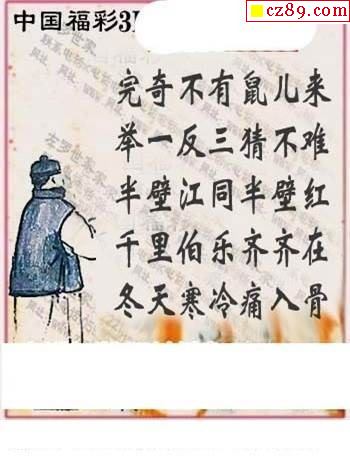 cz89.com
中国福彩3
完奇不有鼠儿来
举一反三猜不难
半壁江同半壁红
千里伯乐齐齐在
冬天寒冷痛入骨